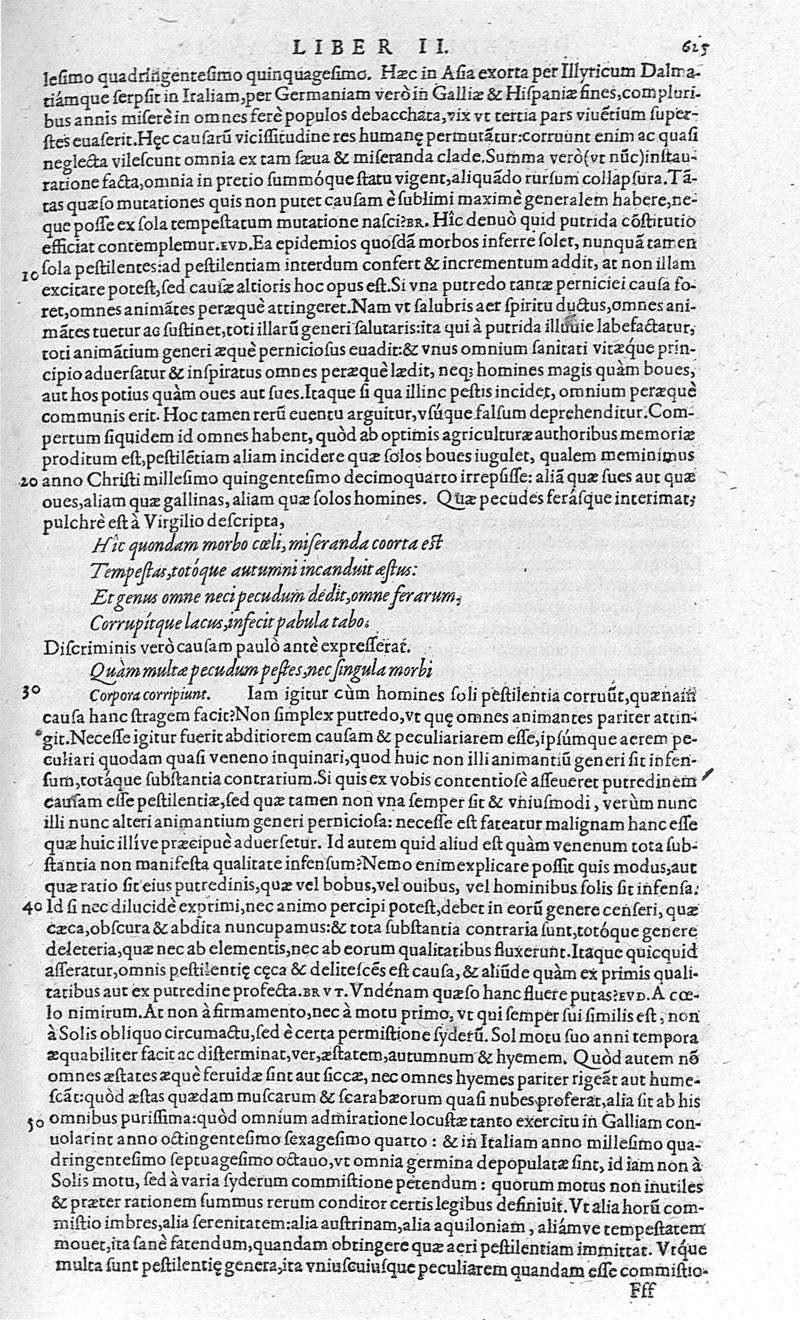 LIBER II. 625
lesimo quadringentesimo quinquagesimo. Hæc in Asia exorta per Illyricum Dalma-
tiámque serpsit in Italiam, per Germaniam verò in Galliæ & Hispaniæ fines, compluri-
bus annis miserè in omnes ferè populos debacchata, vix vt tertia pars viuẽtium super-
stes euaserit. Hęc causarũ vicissitudine res humanę permutãtur: corruunt enim ac quasi
neglecta vilescunt omnia ex tam sæua & miseranda clade. Summa verò (vt nũc) instau-
ratione facta, omnia in pretio summóque statu vigent, aliquãdo rursum collapsura. Tã-
tas quæso mutationes quis non putet causam è sublimi maximè generalem habere, ne-
que posse ex sola tempestatum mutatione nasci? BR. Hîc denuò quid putrida cõstitutio
efficiat contemplemur. EVD. Ea epidemios quosdã morbos inferre solet, nunquã tamen
10 sola pestilentes: ad pestilentiam interdum confert & incrementum addit, at non illam
excitare potest, sed causæ altioris hoc opus est. Si vna putredo tantæ perniciei causa fo-
ret, omnes animãtes peræquè attingeret. Nam vt salubris aer spiritu ductus, omnes ani-
mãtes tuetur ac sustinet, toti illarũ generi salutaris: ita qui à putrida illuuie labefactatur,
toti animãtium generi æquè perniciosus euadit: & vnus omnium sanitati vitæq́ue prin-
cipio aduersatur & inspiratus omnes peræquè lædit, neq; homines magis quàm boues,
aut hos potius quàm oues aut sues. Itaque si qua illinc pestis incidet, omnium peræquè
communis erit. Hoc tamen rerũ euentu arguitur, vsúque falsum deprehenditur. Com-
pertum siquidem id omnes habent, quòd ab optimis agriculturæ authoribus memoriæ
proditum est, pestilẽtiam aliam incidere quæ solos boues iugulet, qualem meminimus
20 anno Christi millesimo quingentesimo decimoquarto irrepsisse: aliã quæ sues aut quæ
oues, aliam quæ gallinas, aliam quæ solos homines. Quæ pecudes ferásque interimat,
pulchrè est à Virgilio descripta,
Hîc quondam morbo cœli, miseranda coorta est
Tempestas, totóque autumni incanduit æstus:
Et genus omne neci pecudum dedit, omne ferarum,
Corrupítque lacus, infecit pabula tabo.
Discriminis verò causam paulò antè expresserat.
Quàm multæ pecudum pestes, nec singula morbi
30 Corpora corripiunt. Iam igitur cùm homines soli pestilentia corruũt, quænam
causa hanc stragem facit? Non simplex putredo, vt quę omnes animantes pariter attin-
git. Necesse igitur fuerit abditiorem causam & peculiariarem esse, ipsúmque aerem pe-
culiari quodam quasi veneno inquinari, quod huic non illi animantiũ generi sit infen-
sum, totáque substantia contrarium. Si quis ex vobis contentiosè asseueret putredinem
causam esse pestilentiæ, sed quæ tamen non vna semper sit & vniusmodi, verùm nunc
illi nunc alteri animantium generi perniciosa: necesse est fateatur malignam hanc esse
quæ huic illíve præcipuè aduersetur. Id autem quid aliud est quàm venenum tota sub-
stantia non manifesta qualitate infensum? Nemo enim explicare possit quis modus, aut
quæ ratio sit eius putredinis, quæ vel bobus, vel ouibus, vel hominibus solis sit infensa.
40 Id si nec dilucidè exprimi, nec animo percipi potest, debet in eorũ genere censeri, quæ
cæca, obscura & abdita nuncupamus: & tota substantia contraria sunt, totóque genere
deleteria, quæ nec ab elementis, nec ab eorum qualitatibus fluxerunt. Itaque quicquid
asseratur, omnis pestilentię cęca & delitescẽs est causa, & aliũde quàm ex primis quali-
tatibus aut ex putredine profecta. BRVT. Vndénam quæso hanc fluere putas? EVD. A cœ-
lo nimirum. At non à firmamento, nec à motu primo, vt qui semper sui similis est, non
à Solis obliquo circumactu, sed è certa permistione syderũ. Sol motu suo anni tempora
æquabiliter facit ac disterminat, ver, æstatem, autumnum & hyemem. Quòd autem nõ
omnes æstates æquè feruidæ sint aut siccæ, nec omnes hyemes pariter rigeãt aut hume-
scãt: quòd æstas quædam muscarum & scarabæorum quasi nubes proferat, alia sit ab his
50 omnibus purissima: quòd omnium admiratione locustæ tanto exercitu in Galliam con-
uolarint anno octingentesimo sexagesimo quarto : & in Italiam anno millesimo qua-
dringentesimo septuagesimo octauo, vt omnia germina depopulatæ sint, id iam non à
Solis motu, sed à varia syderum commistione petendum : quorum motus non inutiles
& præter rationem summus rerum conditor certis legibus definiuit. Vt alia horũ com-
mistio imbres, alia serenitatem: alia austrinam, alia aquiloniam, aliámve tempestatem
mouet, ita sanè fatendum, quandam obtingere quæ aeri pestilentiam immittat. Vtq́ue
multa sunt pestilentię genera, ita vniuscuiusque peculiarem quandam esse commistio-
Fff